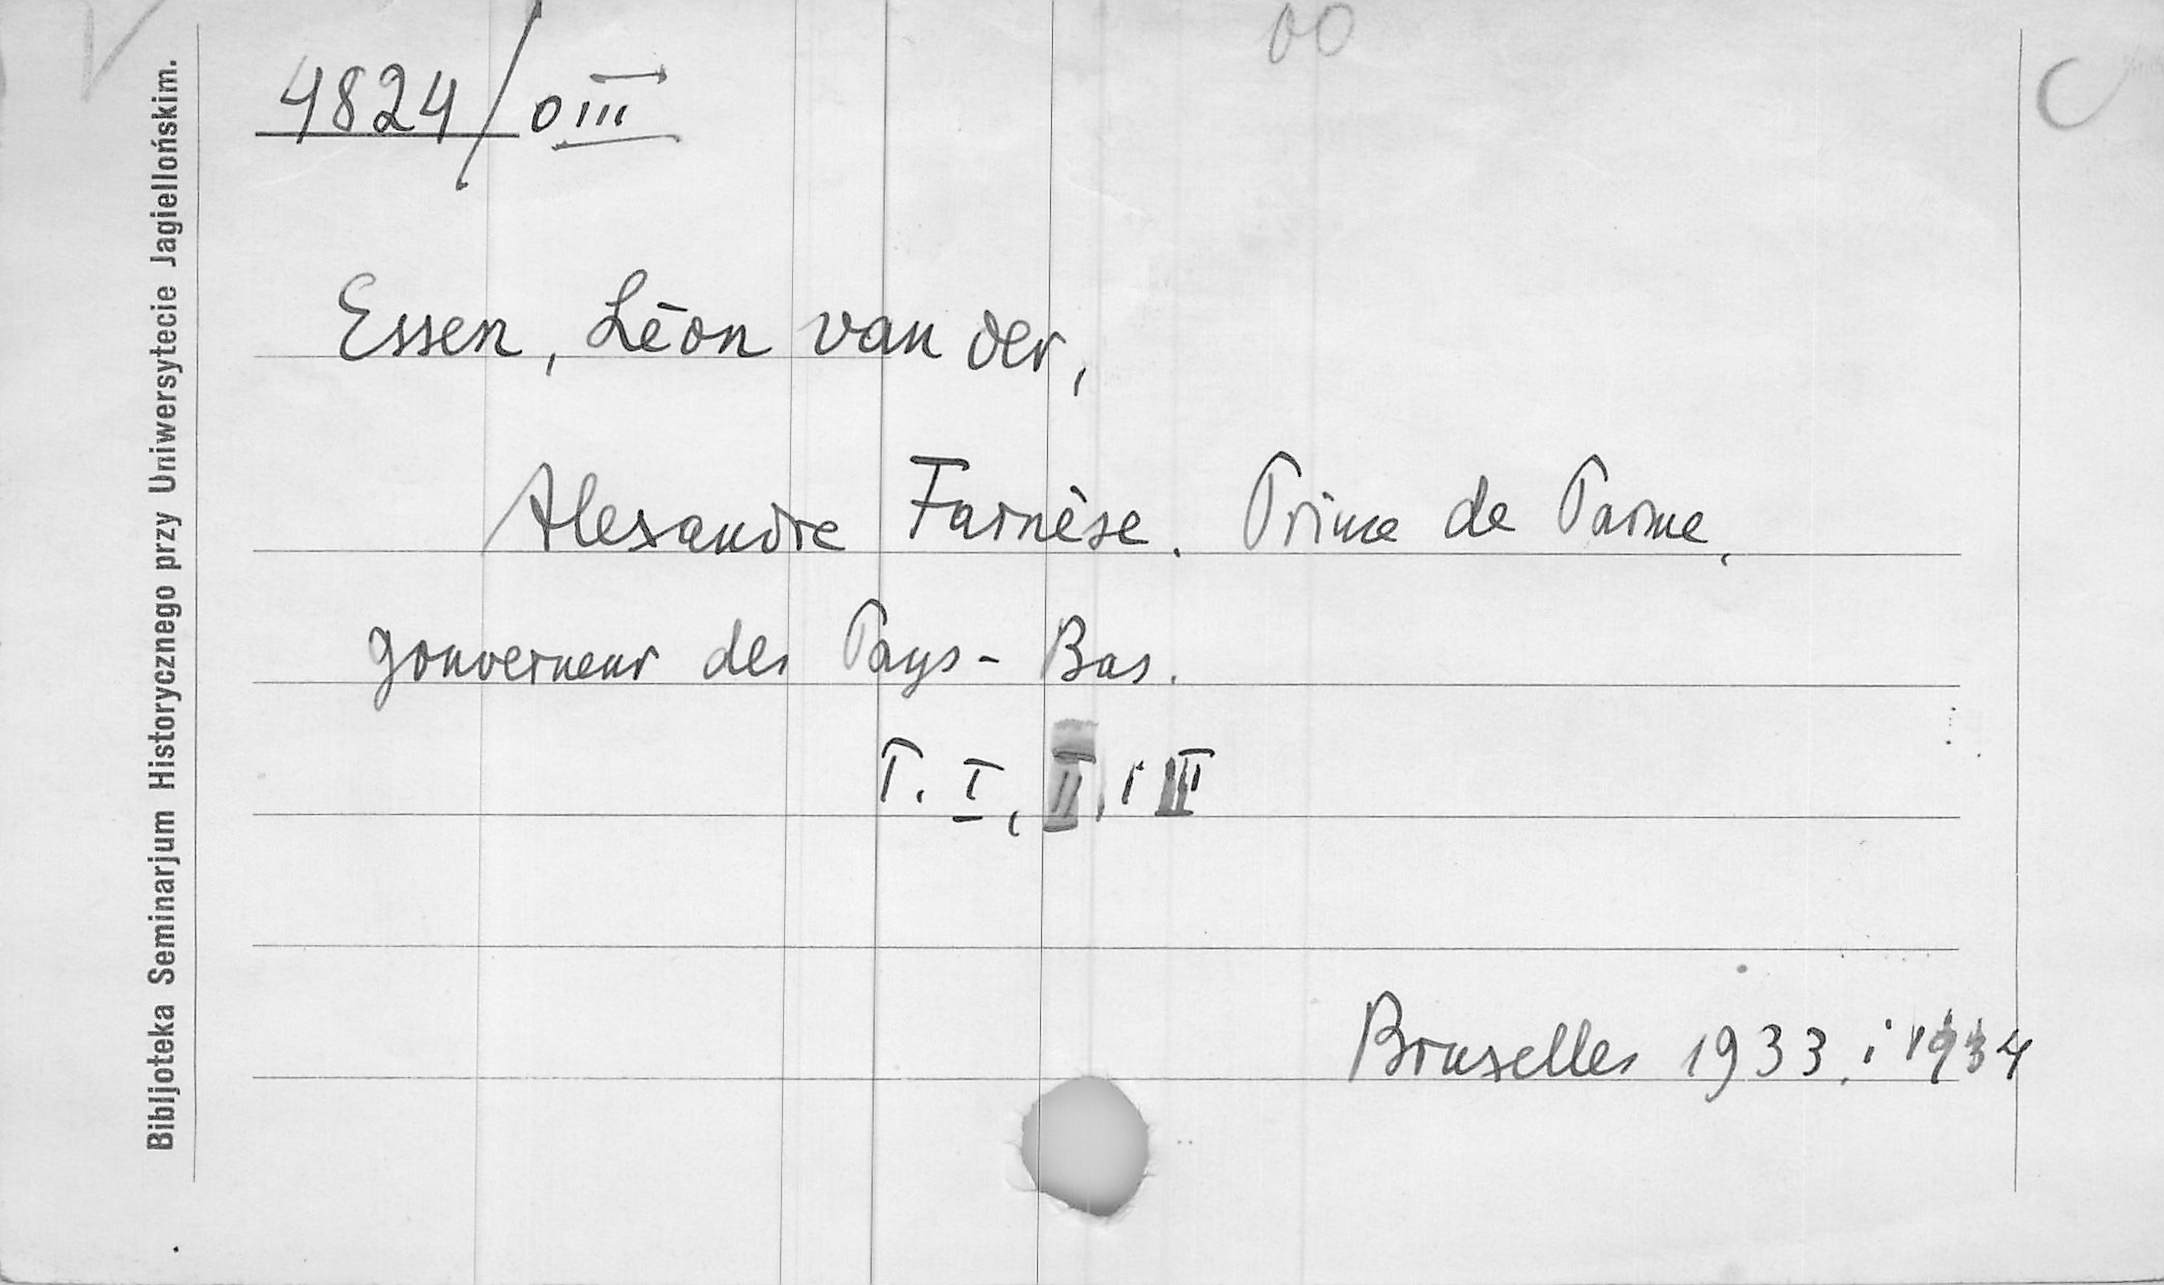 4824/OIII
Essen, Léon van der,
Alexandre Farnèse. Prince de Parme,
gouverneur des Pays-Bas.
T. I, II, i III
Bruxelles 1933, i 1934
Bibljoteka Seminarjum Historycznego przy Uniwersytecie Jagiellońskim.